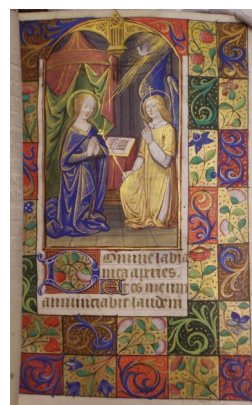 Domine labia
mea aperies.
Et os meum
annunciabit laudem